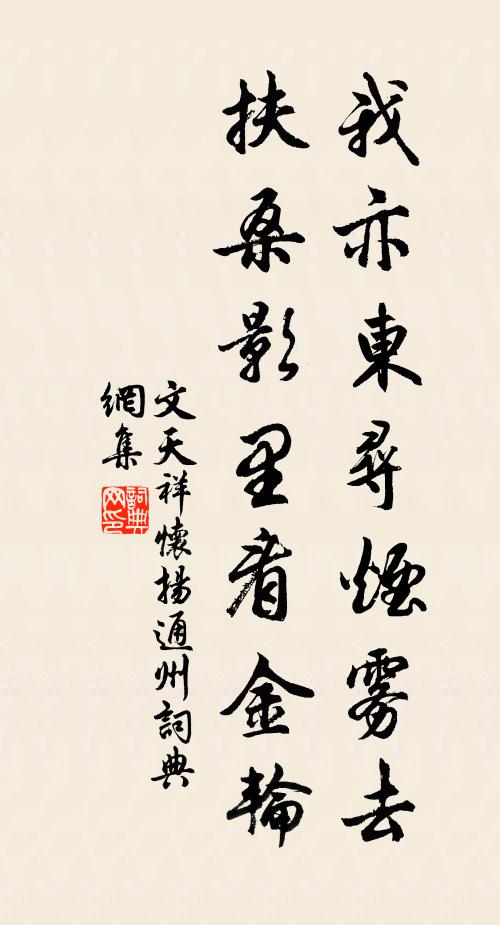 我亦東尋煙雾去
扶桑影里看金輪
文天祥懷揚通州詞典
網集
詞典
网印